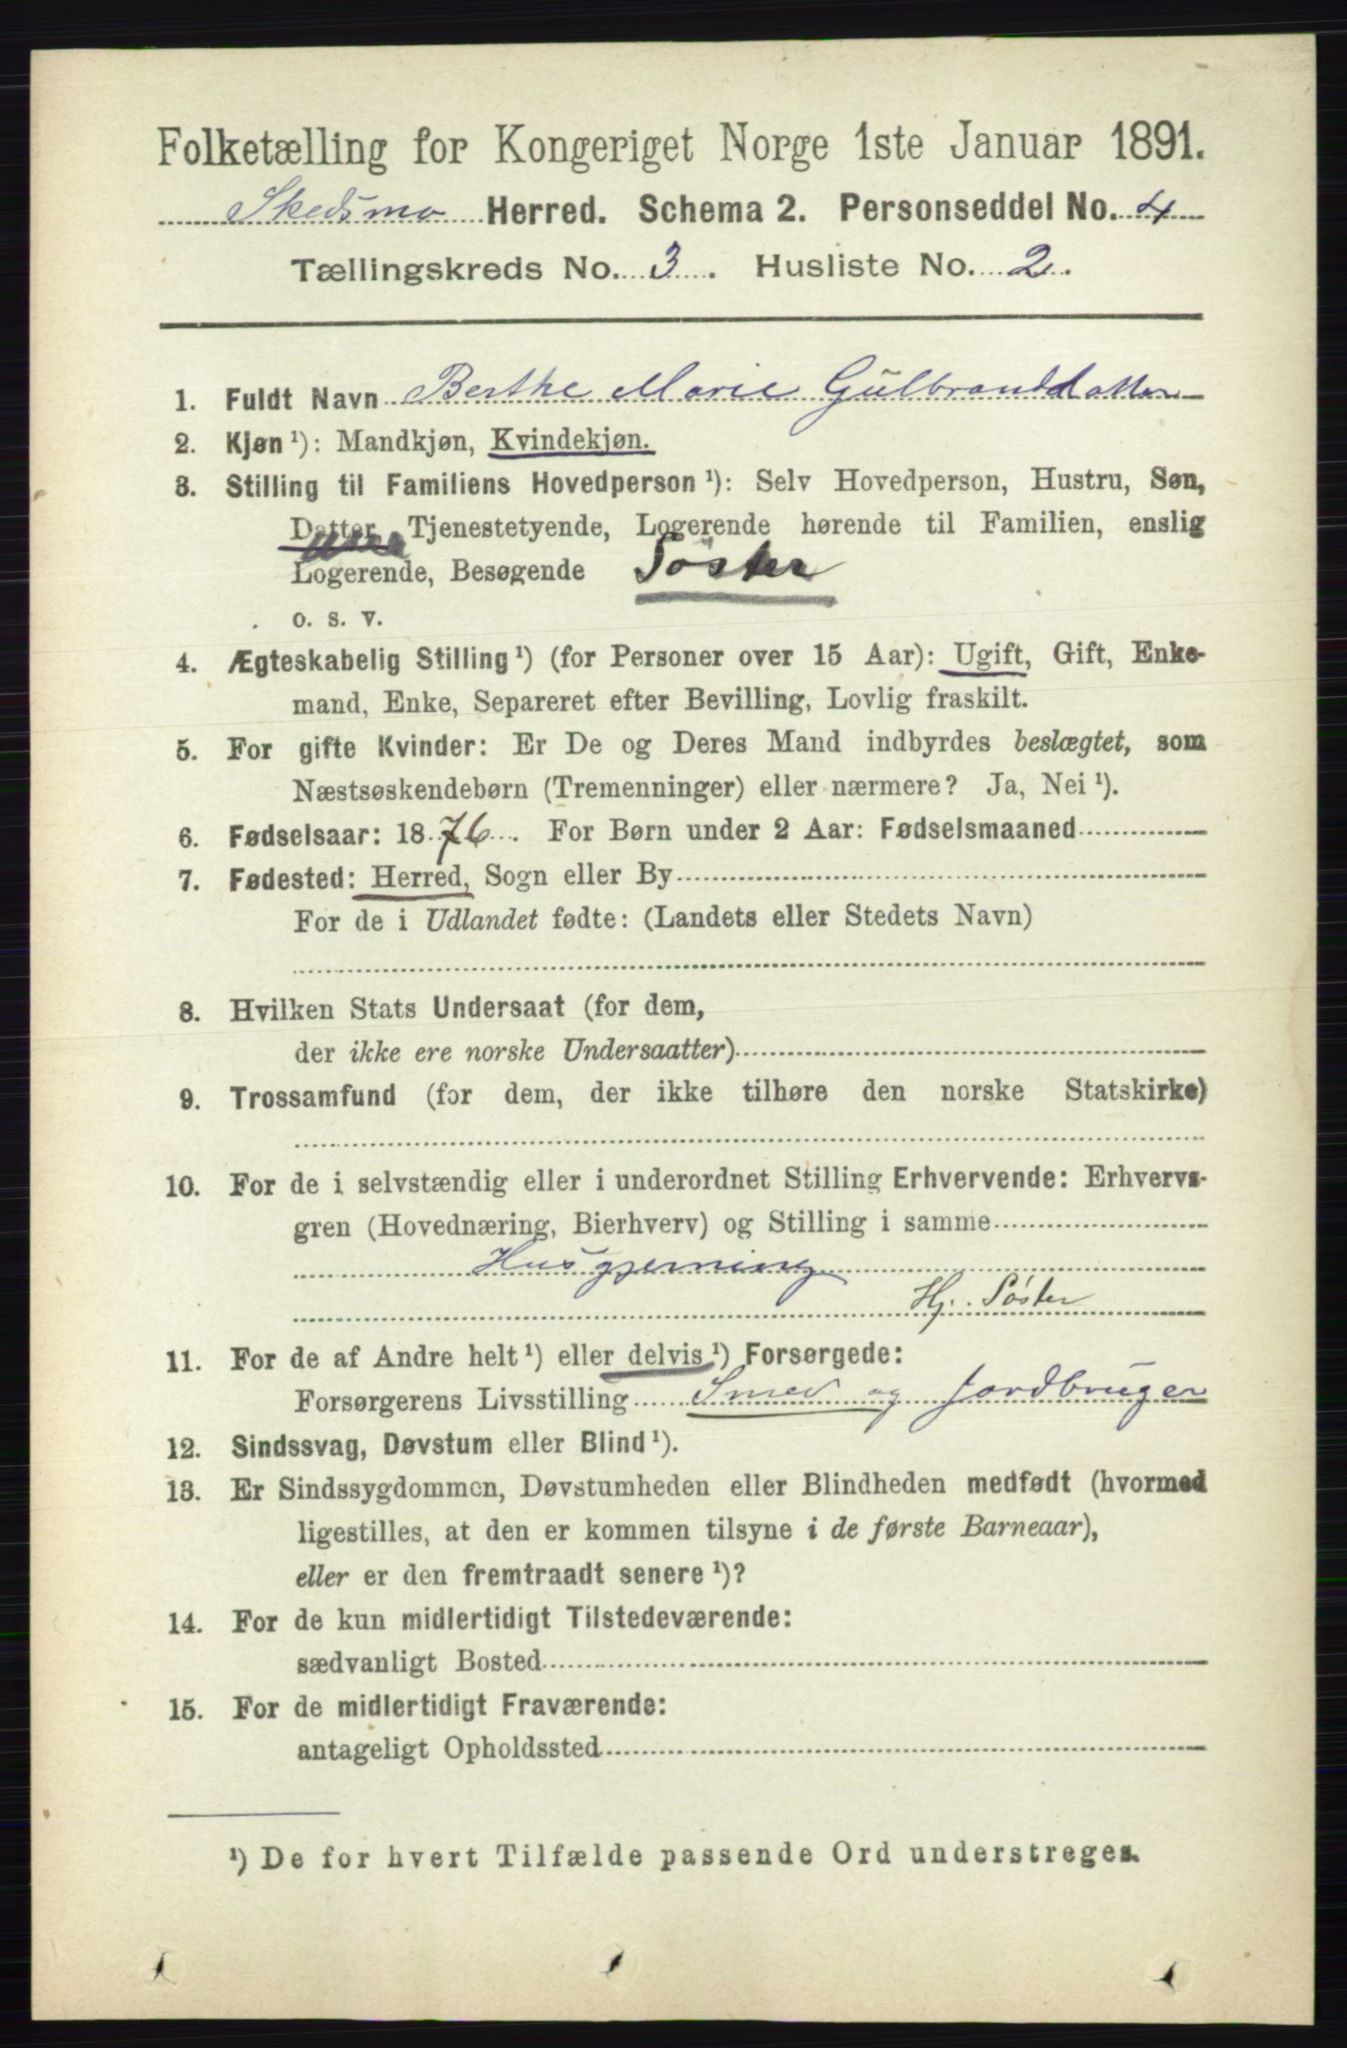 Folketælling for Kongeriget Norge 1ste Januar 1891.
Skedsmo Herred. Schema 2. Personseddel No. 4
Tællingskreds No. 3. Husliste No. 2.
1. Fuldt Navn Berthe Marie Gulbrandsdatter
2. Kjøn ¹): Mandkjøn, Kvindekjøn.
3. Stilling til Familiens Hovedperson ¹): Selv Hovedperson, Hustru, Søn,
Datter, Tjenestetyende, Logerende hørende til Familien, enslig
Logerende, Besøgende Søster
o. s. v.
4. Ægteskabelig Stilling ¹) (for Personer over 15 Aar): Ugift, Gift, Enke-
mand, Enke, Separeret efter Bevilling, Lovlig fraskilt.
5. For gifte Kvinder: Er De og Deres Mand indbyrdes beslægtet, som
Næstsøskendebørn (Tremenninger) eller nærmere? Ja, Nei ¹).
6. Fødselsaar: 1876. For Børn under 2 Aar: Fødselsmaaned
7. Fødested: Herred, Sogn eller By
For de i Udlandet fødte: (Landets eller Stedets Navn)
8. Hvilken Stats Undersaat (for dem,
der ikke ere norske Undersaatter)
9. Trossamfund (for dem, der ikke tilhøre den norske Statskirke)
10. For de i selvstændig eller i underordnet Stilling Erhvervende: Erhvervs-
gren (Hovednæring, Bierhverv) og Stilling i samme
Husgjerning
Hj. Søster
11. For de af Andre helt ¹) eller delvis ¹) Forsørgede:
Forsørgerens Livsstilling Smed og Jordbruger
12. Sindssvag, Døvstum eller Blind ¹).
13. Er Sindssygdommen, Døvstumheden eller Blindheden medfødt (hvormed
ligestilles, at den er kommen tilsyne i de første Barneaar),
eller er den fremtraadt senere ¹)?
14. For de kun midlertidigt Tilstedeværende:
sædvanligt Bosted
15. For de midlertidigt Fraværende:
antageligt Opholdssted
¹) De for hvert Tilfælde passende Ord understreges.